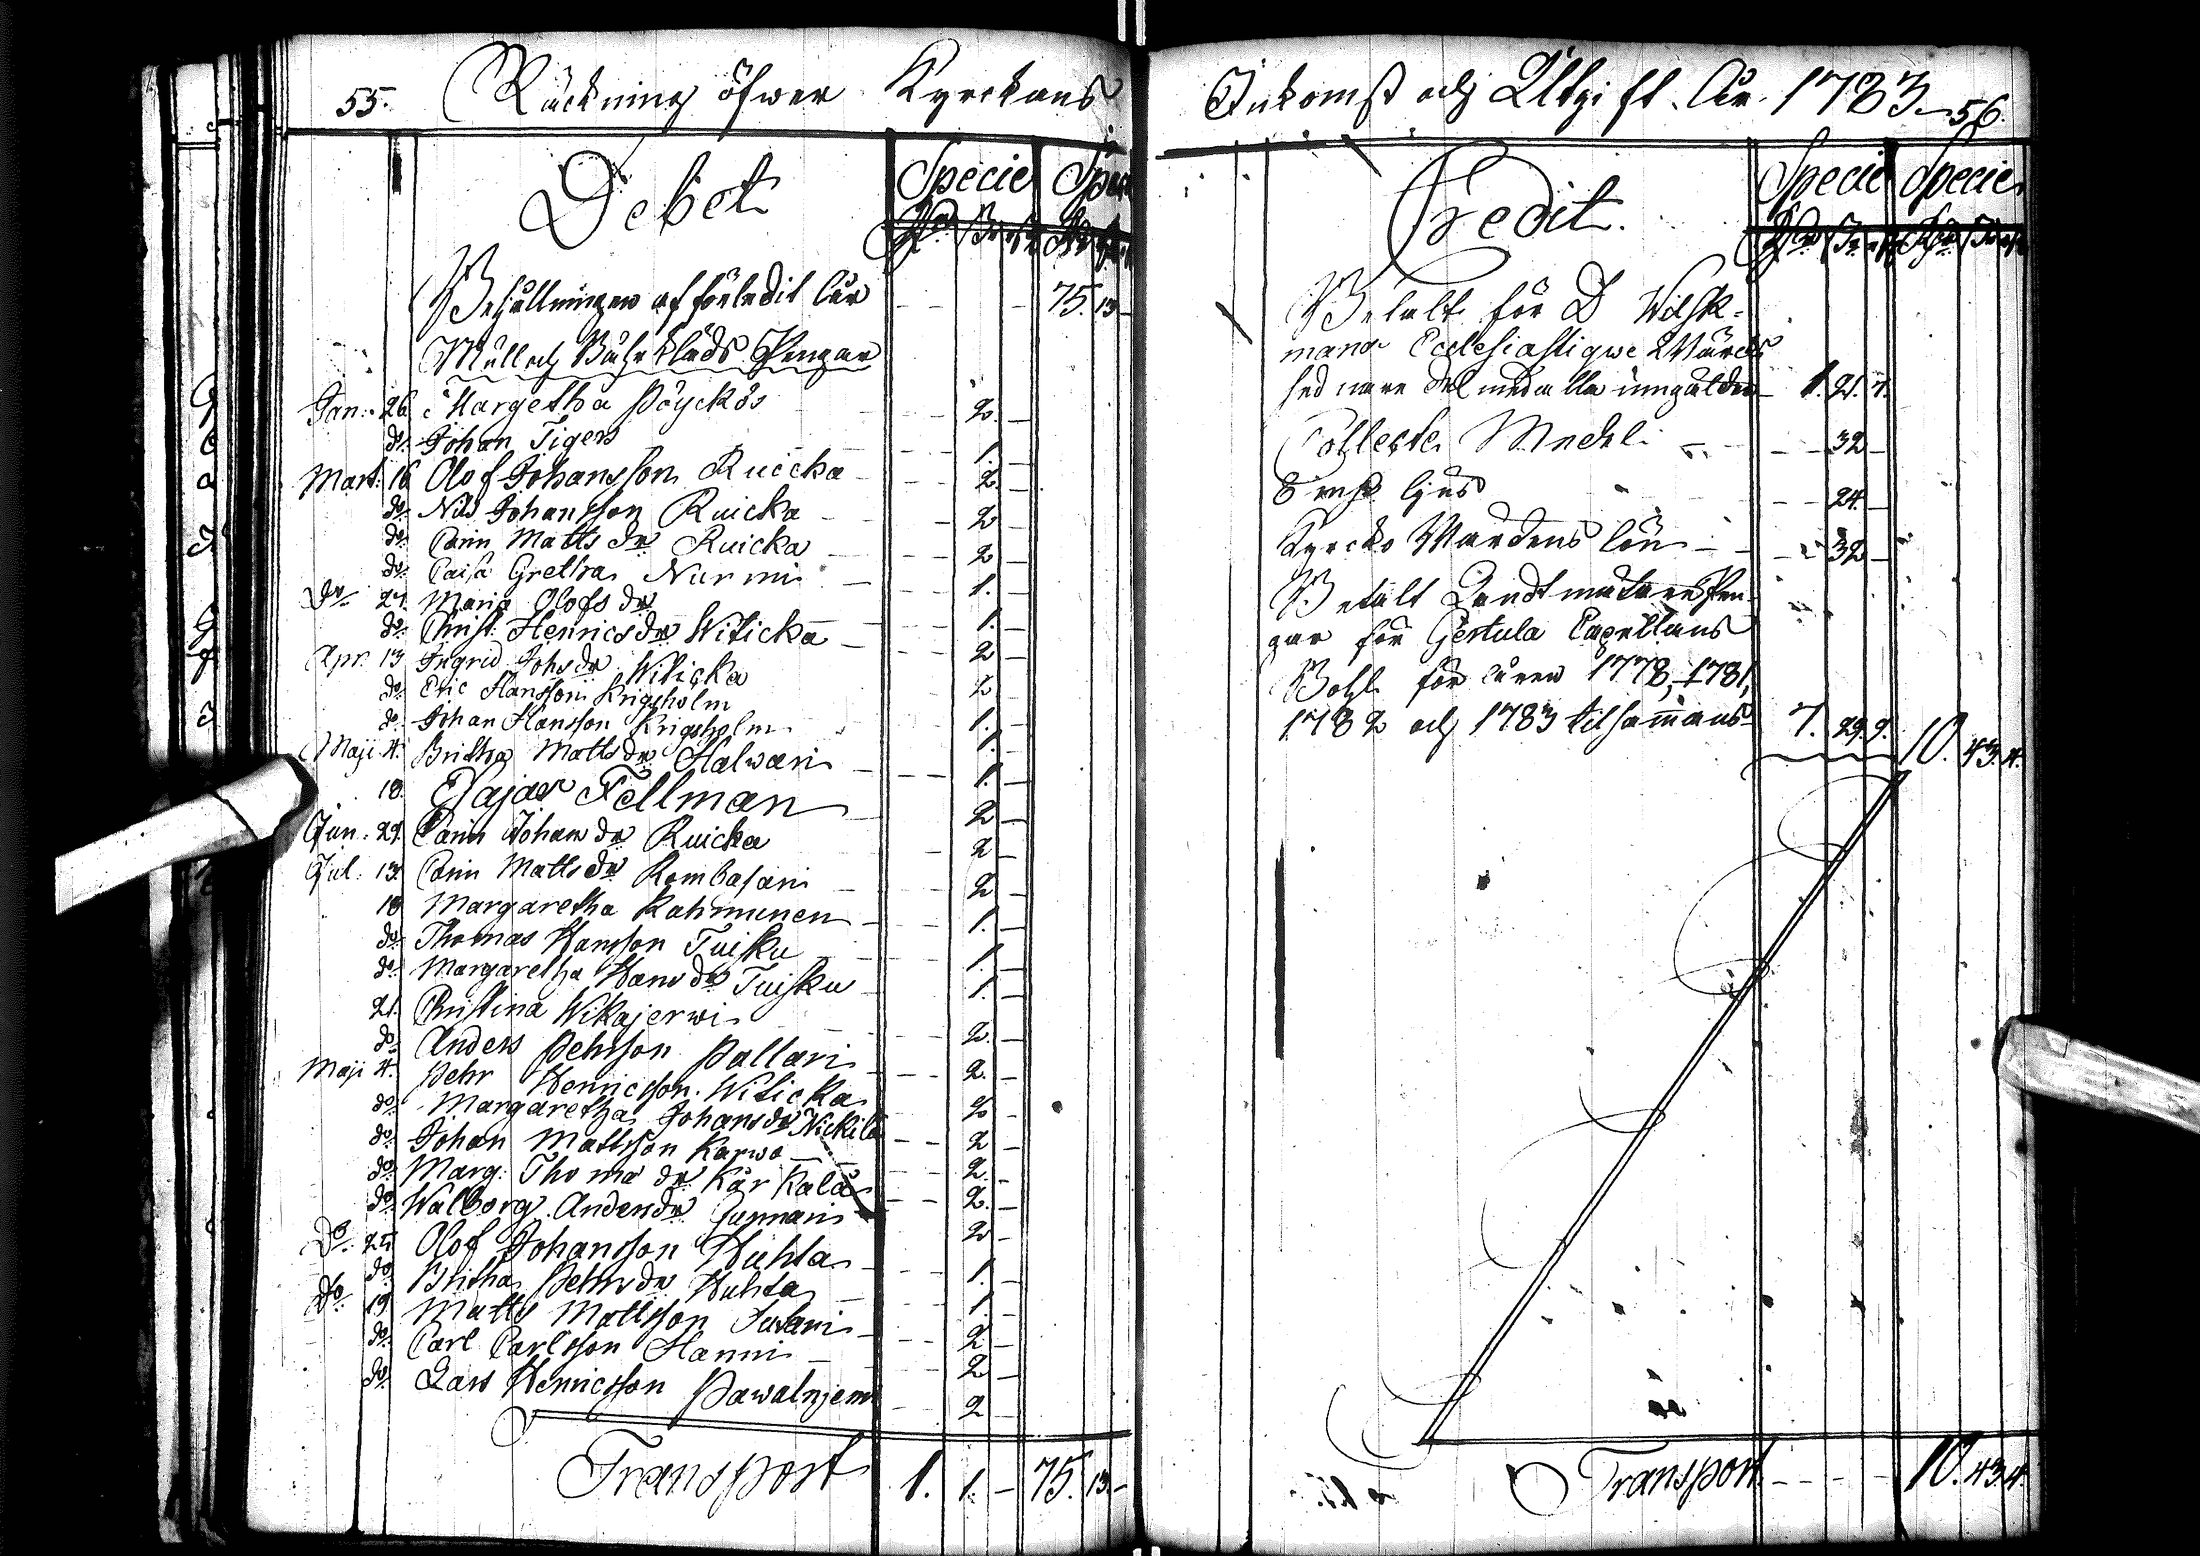 55. Räckning öfwer Kyrckans
Debet Specie Specie
Behållningen af förledit år - - - 75. 13 -
Mull och Bahrkläds Pengar
Jan: 26 Margetha Pöyckös - - 2. -
do. Johan Tigers - - 1. -
Mart. 16 Olof Johansson Ruicka - - 2. -
do. Nils Johansson Ruicka - - 2 -
do. Carin Matts dr Ruicka - - 2 -
do. Caisa Gretha Nurmi - - 1. -
do 27. Maria Olofs dr - - 1. -
do. Christ: Henrics dr Witicka - - 2 -
Apr. 13 Ingrid Johs dr Witicka - - 2 -
do. Eric Hansson Krigsholm - - 1. -
do. Johan Hansson Krigsholm - - 1. -
Maji 4. Britha Matts dr Halwari - - 1. -
18. Pajar Fellman - - 2 -
Jun: 29. Carin Johans dr Ruicka - - 2 -
Jul: 13. Carin Matts dr Kombasari - - 2 -
18 Margaretha Rahmunen - - 1. -
do. Thomas Hansson Tuisku - - 1. -
do. Margaretha Hans dr Tuisku - - 1. -
21. Christina Wikajerwi - - 2. -
do. Anders Pehrsson Pallari - - 2. -
Maji 4. Pehr Henricsson Witicka - - 2 -
do. Margaretha Johans dr Nickila - - 2
do. Johan Mattsson Karwo - - 2 -
do. Marg: Thoma dr Kårkala - - 2. -
do. Walborg Anders dr Junnari - - 2 -
Do. 25 Olof Johansson Huhta - - 1. -
do. Britha Pehrs dr Huhta - - 1. -
do. 19 Matts Mattsson Suwari - - 2 -
do. Carl Carlsson Hanni - - 2 -
do. Lars Henricsson Pawalnjemi - - 2 -
Transport 1. 1. - 75. 13. -
Inkomst och Utgift. År 1783. 56.
Credit. Specie Specie
Betalt för D Wilsk-
mans Ecclesiastique Wärcks
sednare Del med alla inngälder 1. 21. 7.
Collecte Mechl: - - 32 -
ljus - - 24. -
Kyrcko Wardens lön - - 32 -
Betalt Landtmätare Pen-
gar för Gertula Capellans
Bohl för åren 1778, 1781,
1782 och 1783 tilsammans 7. 29. 9. 10. 43. 4.
Transport - - - - 10. 43. 4.